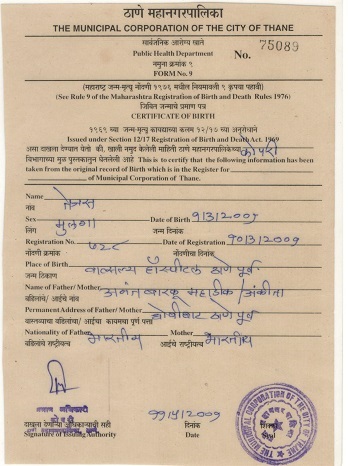 ठाणे महानगरपालिका
THE MUNICIPAL CORPORATION OF THE CITY OF THANE
सार्वजनिक आरोग्य खाते
Public Health Department
No. 75089
नमुना क्रमांक ९
FORM No. 9
(महाराष्ट्र जन्म-मृत्यू नोंदणी १९७६ मधील नियमावली ९ कृपया पहावी)
(See Rule 9 of the Maharashtra Registration of Birth and Death Rules 1976)
जिवित जन्माचे प्रमाण पत्र
CERTIFICATE OF BIRTH
१९६९ च्या जन्म मृत्यू कायद्याच्या कलम १२/१७ च्या अनुरोधाने
Issued under Section 12/17 Registration of Birth and Death Act. 1969
असा दाखला देण्यात येतो की, खाली नमुद केलेली माहिती ठाणे महानगरपालिकेच्या कोपरी
विभागाच्या मुळ पुस्तकातुन घेतलेली आहे This is to certify that the following information has been
taken from the original record of Birth which is in the Register for
of Municipal Corporation of Thane.
Name तेजस
नाव
Sex मुलगा Date of Birth 9/3/2009
लिंग जन्म दिनांक
Registration No. ७२८ Registration Date of 90/3/2009
नोंदणी क्रमांक नोंदणीचा दिनांक
Place of Birth वात्सल्य हॉस्पीटल ठाणे पूर्व
जन्म ठिकाण
Name of Father/Mother अनंत महाडीक / अंकीता
वडिलांचे/ आईचे नाव
Permanent Address of Father/Mother ठाणे पूर्व
वास्तव्याचा वडिलांचा/ आईचा कायमचा पुर्ण पत्ता
Nationality of Father भारतीय Mother भारतीय
वडिलांचे राष्ट्रीयत्व आईचे राष्ट्रीयत्व
दाखला देणाऱ्या अधिकाऱ्याची सही दिनांक
Signature of Issuing Authority Date
THE MUNICIPAL CORPORATION OF THE CITY OF THANE